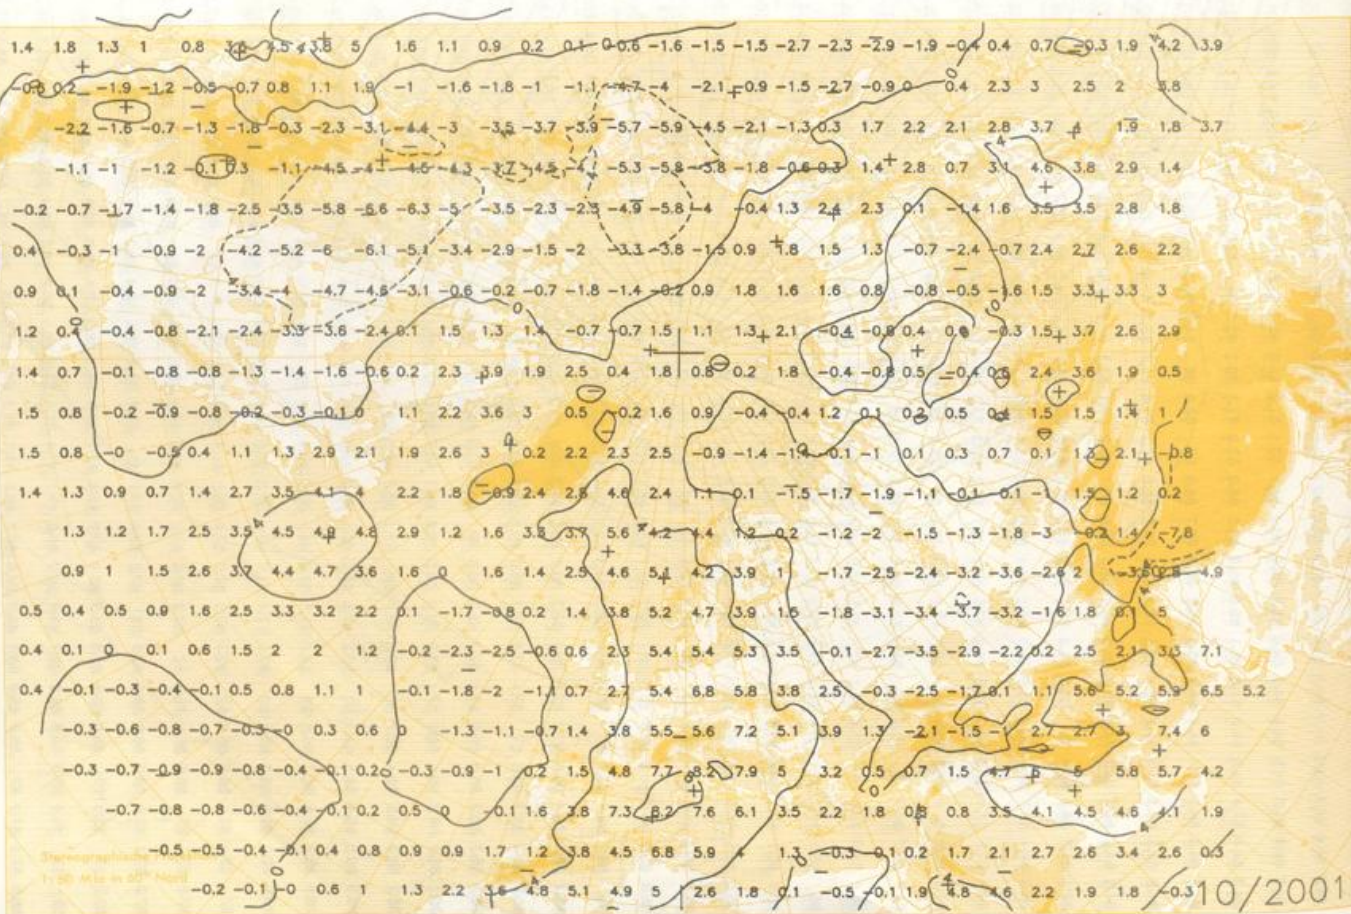 1.4 1.8 1.3 1 0.8 3.6 4.5 3.8 5 1.6 1.1 0.9 0.2 0.1 0 -0.6 -1.6 -1.5 -1.5 -2.7 -2.3 -2.9 -1.9 -0.4 0.4 0.7 -0.3 1.9 4.2 3.9
-0.6 0.2 -1.9 -1.2 -0.5 -0.7 0.8 1.1 1.9 -1 -1.6 -1.8 -1 -1.1 -4.7 -4 -2.1 -0.9 -1.5 -2.7 -0.9 0 0.4 2.3 3 2.5 2 3.8
-2.2 -1.6 -0.7 -1.3 -1.8 -0.3 -2.3 -3.1 -4.4 -3 -3.5 -3.7 -3.9 -5.7 -5.9 -4.5 -2.1 -1.3 0.3 1.7 2.2 2.1 2.8 3.7 4 1.9 1.8 3.7
-1.1 -1 -1.2 -0.1 0.3 -1.1 -4.5 -4 -4.6 -4.3 -3.7 -4.5 -5.3 -5.8 -3.8 -1.8 -0.6 0.3 1.4 2.8 0.7 3.1 4.6 3.8 2.9 1.4
-0.2 -0.7 -1.7 -1.4 -1.8 -2.5 -3.5 -5.8 -5.6 -6.3 -5 -3.5 -2.3 -2.3 -4.9 -5.8 -4 -0.4 1.3 2.4 2.3 0.1 -1.4 1.6 3.5 3.5 2.8 1.8
0.4 -0.3 -1 -0.9 -2 -4.2 -5.2 -6 -6.1 -5.1 -3.4 -2.9 -1.5 -2 -3.3 -3.8 -1.5 0.9 1.8 1.5 1.3 -0.7 -2.4 -0.7 2.4 2.7 2.6 2.2
0.9 0.1 -0.4 -0.9 -2 -3.4 -4 -4.7 -4.6 -3.1 -0.6 -0.2 -0.7 -1.8 -1.4 -0.2 0.9 1.8 1.6 1.6 0.8 -0.8 -0.5 -1.6 1.5 3.3 3.3 3
0
1.2 0.4 -0.4 -0.8 -2.1 -2.4 -3.3 -3.6 -2.4 0.1 1.5 1.3 1.4 -0.7 -0.7 1.5 1.1 1.3 2.1 -0.4 -0.8 0.4 0.6 -0.3 1.5 3.7 2.6 2.9
1.4 0.7 -0.1 -0.8 -0.8 -1.3 -1.4 -1.6 -0.6 0.2 2.3 3.9 1.9 2.5 0.4 1.8 0.8 0.2 1.8 -0.4 -0.8 0.5 -0.4 0.6 2.4 3.6 1.9 0.5
1.5 0.8 -0.2 -0.9 -0.8 -0.2 -0.3 -0.1 0 1.1 2.2 3.6 3 0.5 -0.2 1.6 0.9 -0.4 -0.4 1.2 0.1 0.2 0.5 0.4 1.5 1.5 1.4 1
1.5 0.8 -0 -0.5 0.4 1.1 1.3 2.9 2.1 1.9 2.6 3 0.2 2.2 2.3 2.5 -0.9 -1.4 -1.4 -0.1 -1 0.1 0.3 0.7 0.1 1.3 2.1 -0.8
1.4 1.3 0.9 0.7 1.4 2.7 3.5 4.1 4 2.2 1.8 -0.9 2.4 2.8 4.6 2.4 1.1 0.1 -1.5 -1.7 -1.9 -1.1 -0.1 0.1 -1 1.5 1.2 0.2
1.3 1.2 1.7 2.5 3.5 4.5 4.9 4.8 2.9 1.2 1.6 3.5 3.7 5.6 4.2 4.4 1.2 0.2 -1.2 -2 -1.5 -1.3 -1.8 -3 -0.2 1.4 -7.8
0.9 1 1.5 2.6 3.7 4.4 4.7 3.6 1.6 0 1.6 1.4 2.5 4.6 5.1 4.2 3.9 1 -1.7 -2.5 -2.4 -3.2 -3.6 -2.6 2 4.9
0.5 0.4 0.5 0.9 1.6 2.5 3.3 3.2 2.2 0.1 -1.7 -0.8 0.2 1.4 3.8 5.2 4.7 3.9 1.6 -1.8 -3.1 -3.4 -3.7 -3.2 -1.6 1.8 0.1 5
0.4 0.1 0 0.1 0.6 1.5 2 2 1.2 -0.2 -2.3 -2.5 -0.6 0.6 2.3 5.4 5.4 5.3 3.5 -0.1 -2.7 -3.5 -2.9 -2.2 0.2 2.5 2.1 3.3 7.1
0.4 -0.1 -0.3 -0.4 -0.1 0.5 0.8 1.1 1 -0.1 -1.8 -2 -1.1 0.7 2.7 5.4 6.8 5.8 3.8 2.5 -0.3 -2.5 -1.7 0.1 1.1 5.6 5.2 5.9 6.5 5.2
-0.3 -0.6 -0.8 -0.7 -0.3 -0 0.3 0.6 0 -1.3 -1.1 -0.7 1.4 3.8 5.5 5.6 7.2 5.1 3.9 1.3 -2.1 -1.5 -1 2.7 2.7 3 7.4 6
-0.3 -0.7 -0.9 -0.9 -0.8 -0.4 -0.1 0.2 -0.3 -0.9 -1 0.2 1.5 4.8 7.7 8.2 7.9 5 3.2 0.5 0.7 1.5 4.7 6 5 5.8 5.7 4.2
-0.7 -0.8 -0.8 -0.6 -0.4 -0.1 0.2 0.5 0 -0.1 1.6 3.8 7.3 8.2 7.6 6.1 3.5 2.2 1.8 0.8 0.8 3.5 4.1 4.5 4.6 4.1 1.9
-0.5 -0.5 -0.4 -0.1 0.4 0.8 0.9 0.9 1.7 1.2 3.8 4.5 6.8 5.9 4 1.3 -0.3 -0.1 0.2 1.7 2.1 2.7 2.6 3.4 2.6 0.3
Stereographische
-0.2 -0.1 -0 0.6 1 1.3 2.2 3.6 4.8 5.1 4.9 5 2.6 1.8 0.1 -0.5 -0.1 1.9 4.8 4.6 2.2 1.9 1.8 -0.3
in 60° Nord
10/2001